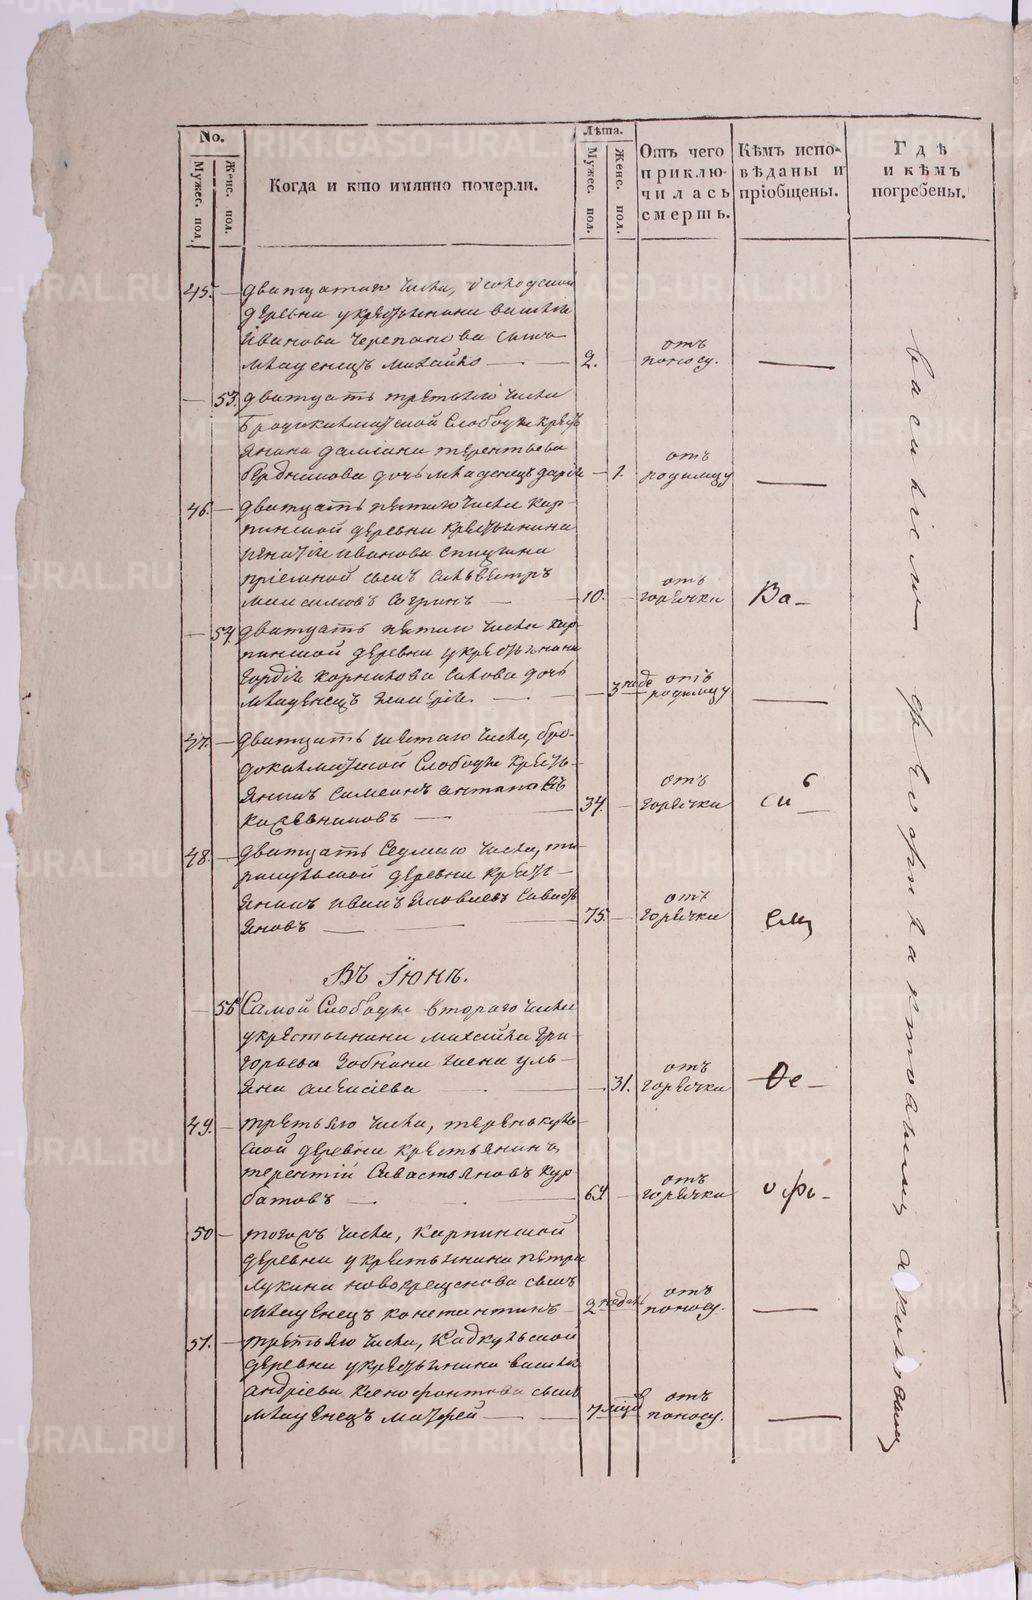 No.
Мужес. пол.
Женс. пол.
Когда и кто имянно померли.
Лѣта.
Мужес. пол.
Женс. пол.
Отъ чего
приклю-
чилась
смерть.
Кѣмъ испо-
вѣданы и
пріобщены.
Гдѣ
и кѣмъ
погребены.
45. — дватцатаго числа,
деревни у крестьянина василія
иванова черепанова сынъ
младенецъ михайло — 2. отъ поносу. —
— 53. дватцать третьяго числа
бродокалмацкой Слободы крест
янина даміана терентьева
бердникова дочь младенецъ дарія — 1. отъ родимцу —
46. — дватцать пятаго числа кар-
пинской деревни крестьянина
игнатія иванова спицына
пріемной сынъ силвестръ
максимовъ — 10. — отъ горячки Ва-
— 54. дватцать пятаго числа кар-
пинской деревни у крестьянина
гордія корнилова дочь
младенецъ — 3 неде отъ родимцу —
47. — дватцать шестаго числа, бро-
докалмацкой Слободы кресть-
янинъ симеонъ антановъ
— 34. — отъ горячки сиі
48. — дватцать седмаго числа,
деревни кресть-
янинъ иванъ яковлевъ Савасть
яновъ — 75. — отъ горячки емъ
Въ Іюнѣ.
— 55 Самой Слободы втораго числа
у крестьянина михайла гри-
горьева зобнина жена уль-
яна алексіева — 31. отъ горячки Ѳе-
49. — третьяго числа, теренкуль-
ской деревни крестьянинъ
терентій Савастьяновъ кур
батовъ — 64 — отъ горячки офи-
50 — тогожъ числа, карпинской
деревни у крестьянина петра
лукина новокрещенова сынъ
младенецъ константинъ — 2 недели отъ поносу. —
51. — третьяго числа, Кадкульской
деревни у крестьянина василія
андріева ксенофонтова сынъ
младенецъ матфей — 7 мцов отъ поносу. —
METRIKI.GASO-URAL.RU